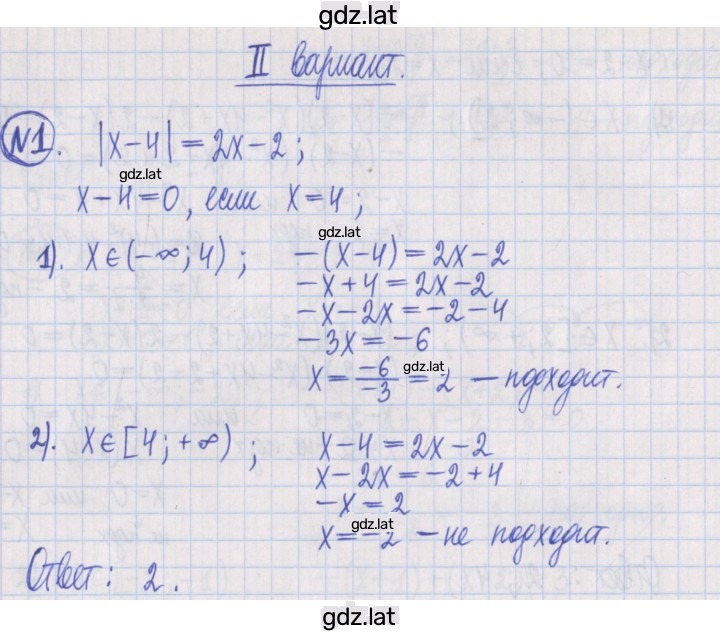 gdz.lat
II вариант.
№1. |x-4|=2x-2;
gdz.lat
x-4=0, если x=4;
gdz.lat
1). x∈(-∞;4); -(x-4)=2x-2
-x+4=2x-2
-x-2x=-2-4
-3x=-6
gdz.lat
x=-6/-3=2 - подходит.
2). x∈[4;+∞); x-4=2x-2
x-2x=-2+4
-x=2
gdz.lat
x=-2 - не подходит.
Ответ: 2.
gdz.lat